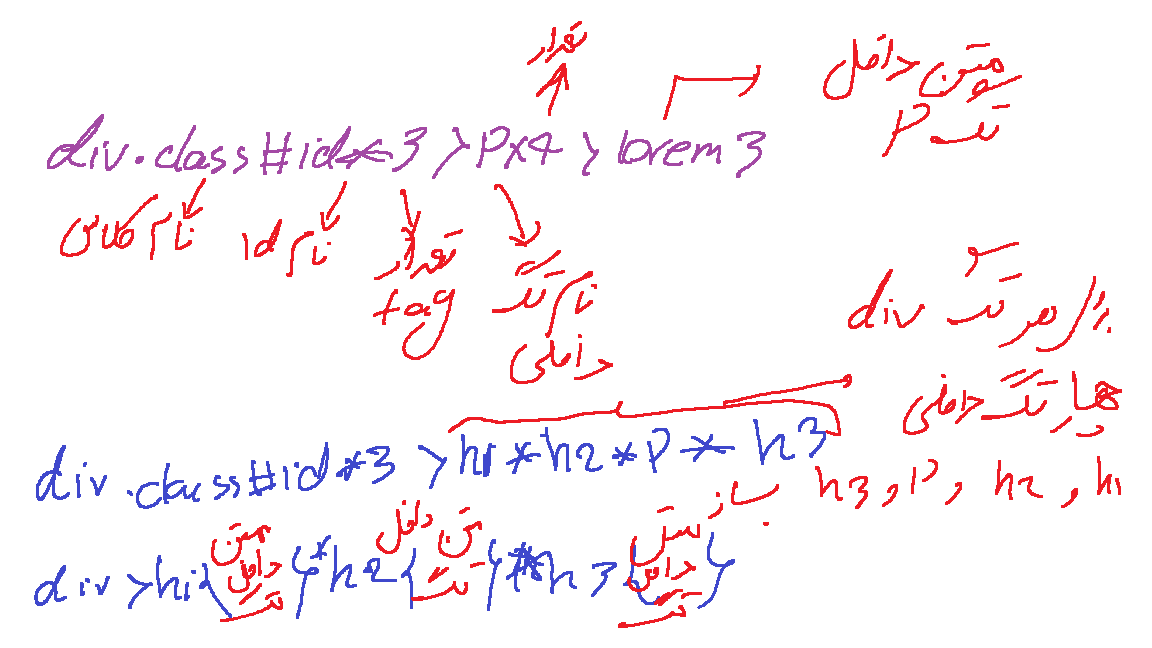 تعداد
متن داخل
تگ P
div.class#id*3>P*4>lorem3
نام کلاس
نام id
تعداد
tag
نام تگ
داخلی
برای هر تگ div
چهار تگ داخلی
h1, h2, P, h3
بساز
div.class#id*3>h1*h2*P*h3
div>h1{متن داخل تگ}*h2{متن داخل تگ}*h3{متن داخل تگ}